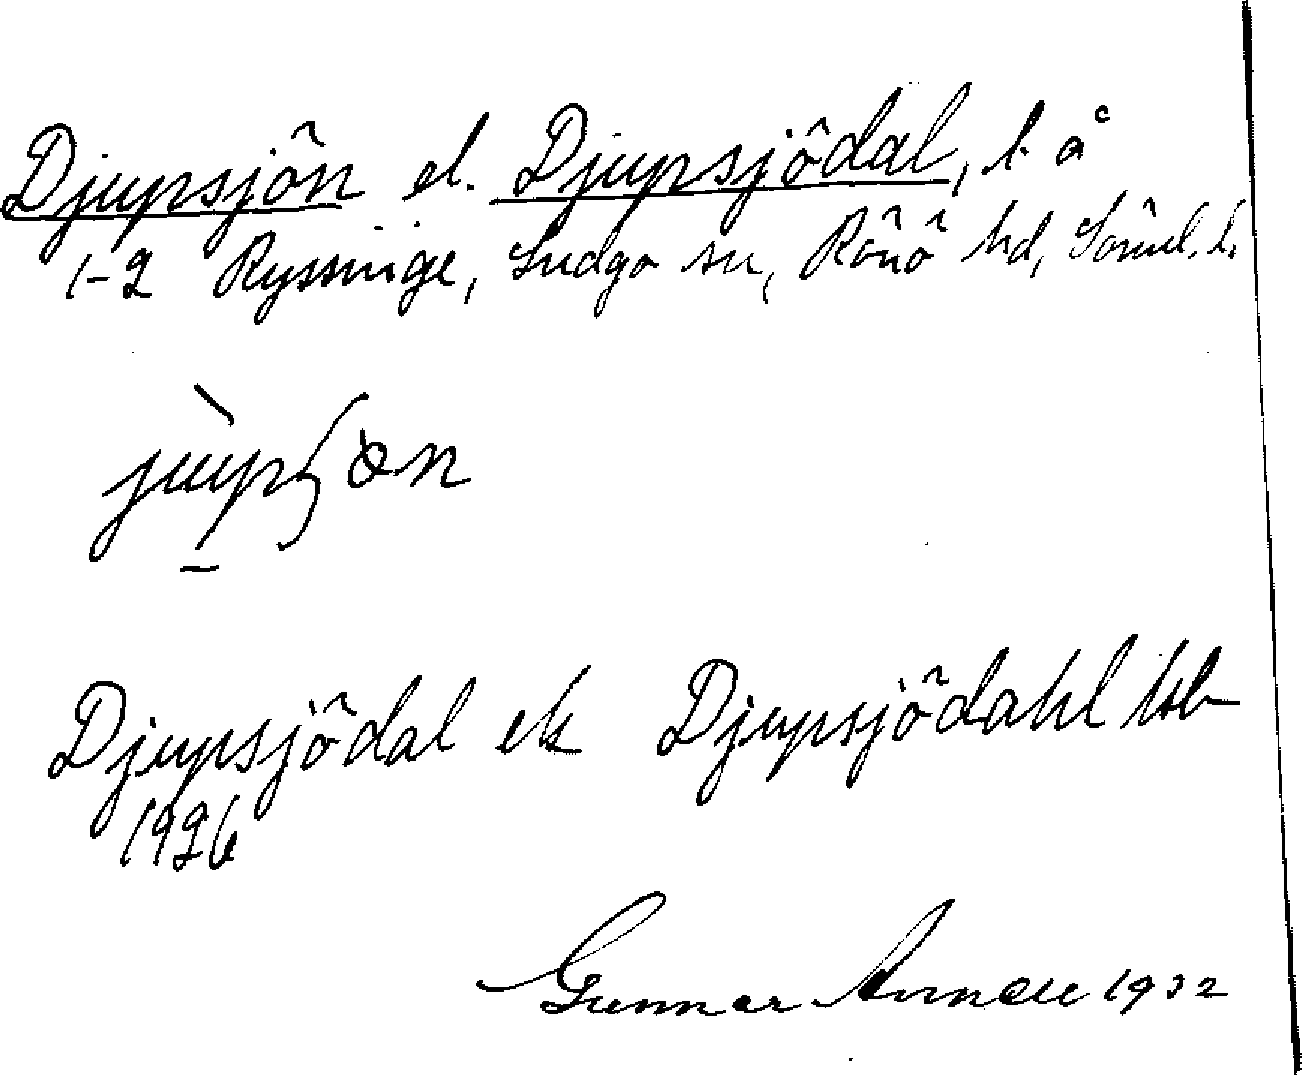 Djupsjön el. Djupsjödal, l. å
1-2 Ryssinge, Ludgo sn, Rönö hd, Söml. l.
Djupsjödal ek Djupsjödahl hsb
1926
Gunnar 1932